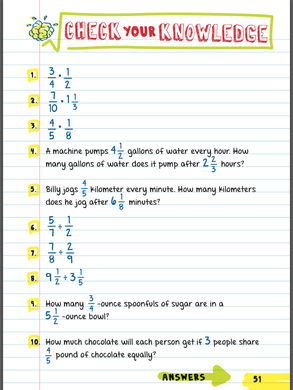 CHECK YOUR KNOWLEDGE
1. 3/4 • 1/2
2. 7/10 • 1 1/3
3. 4/5 • 1/8
4. A machine pumps 4 1/2 gallons of water every hour. How
many gallons of water does it pump after 2 2/3 hours?
5. Billy jogs 4/5 kilometer every minute. How many kilometers
does he jog after 6 1/8 minutes?
6. 5/7 ÷ 1/2
7. 7/8 ÷ 2/9
8. 9 1/2 ÷ 3 1/5
9. How many 3/4-ounce spoonfuls of sugar are in a
5 1/2-ounce bowl?
10. How much chocolate will each person get if 3 people share
4/5 pound of chocolate equally?
ANSWERS 51